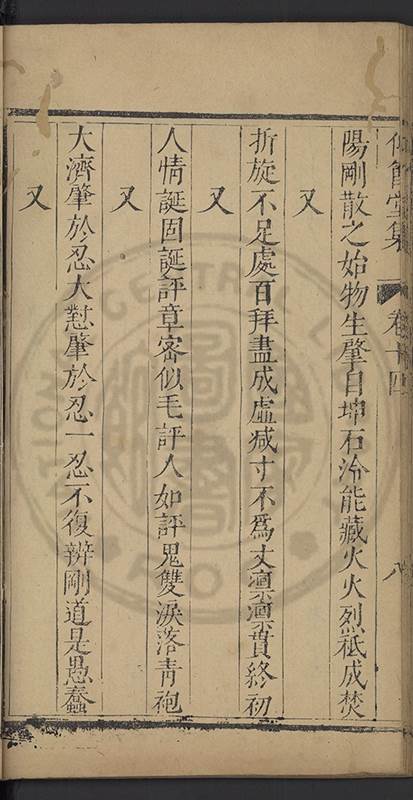 仰節堂集 卷十四 八
陽剛散之始物生肇自坤石冷能藏火火烈祗成焚
又
折旋不足處百拜盡成虛减寸不爲丈凛凛貴終初
又
人情誕固誕評章密似毛評人如評鬼雙淚落青袍
又
大濟肇於忍大懟肇於忍一忍不復辨剛道是愚蠢
又